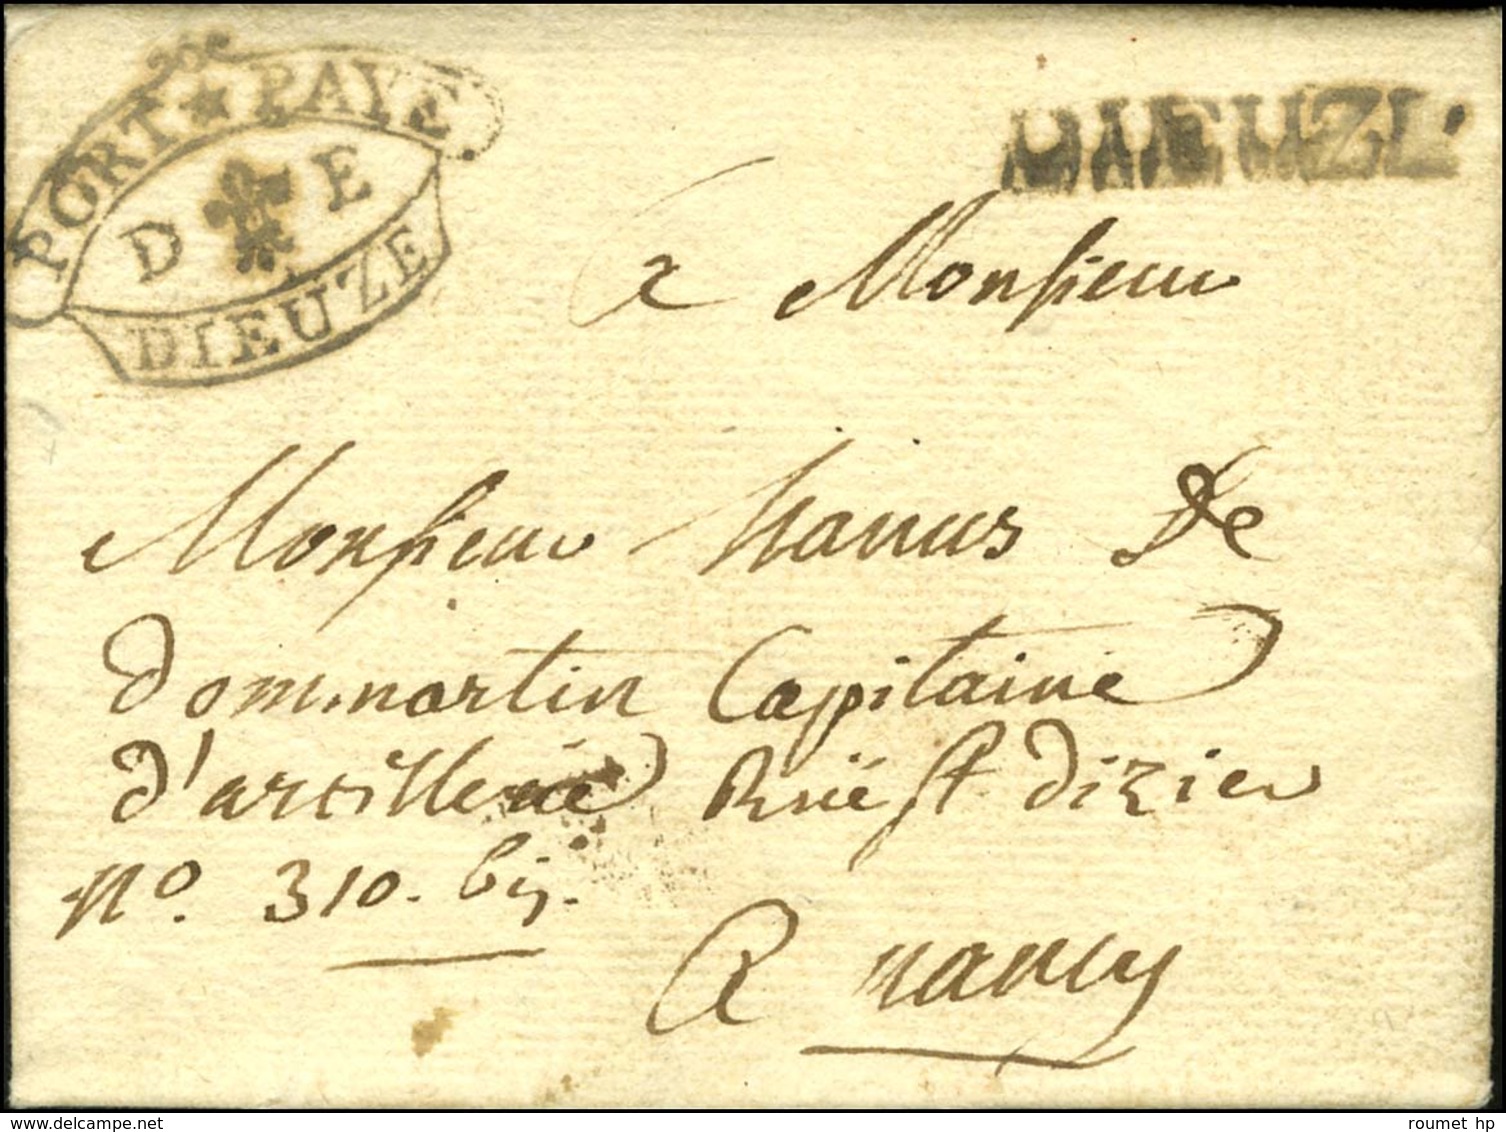 PORT ★ PAYE
D E
DIEUZE
DIEUZE
a Monsieur
Monsieur hanus de
dommartin Capitaine
d'artillerie Ruë St dizier
no. 310. bis.
A nancy
roumet hp